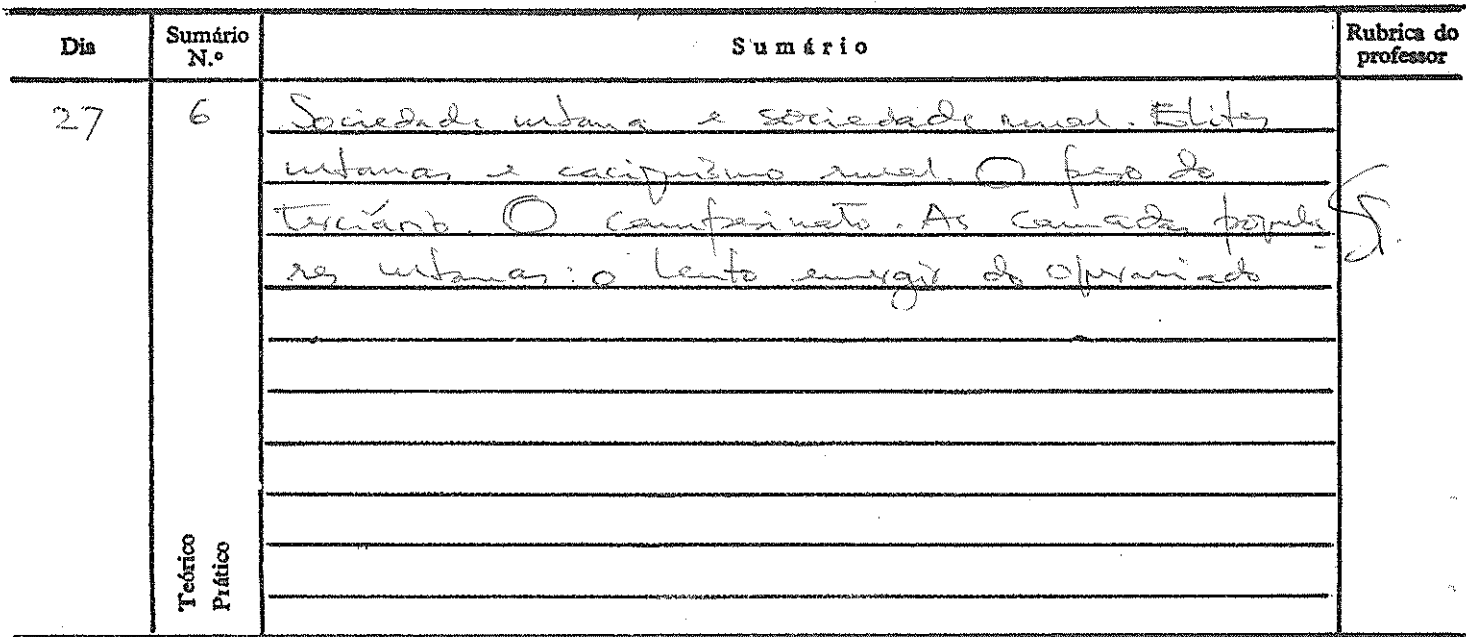 Dia Sumário N.º Sumário Rubrica do professor
27 6 Sociedade urbana e sociedade rural. Elites
urbanas e caciquismo rural. O peso do
terciário. O campesinato. As camadas popula-
res urbanas: o lento emergir do operariado
Teórico
Prático